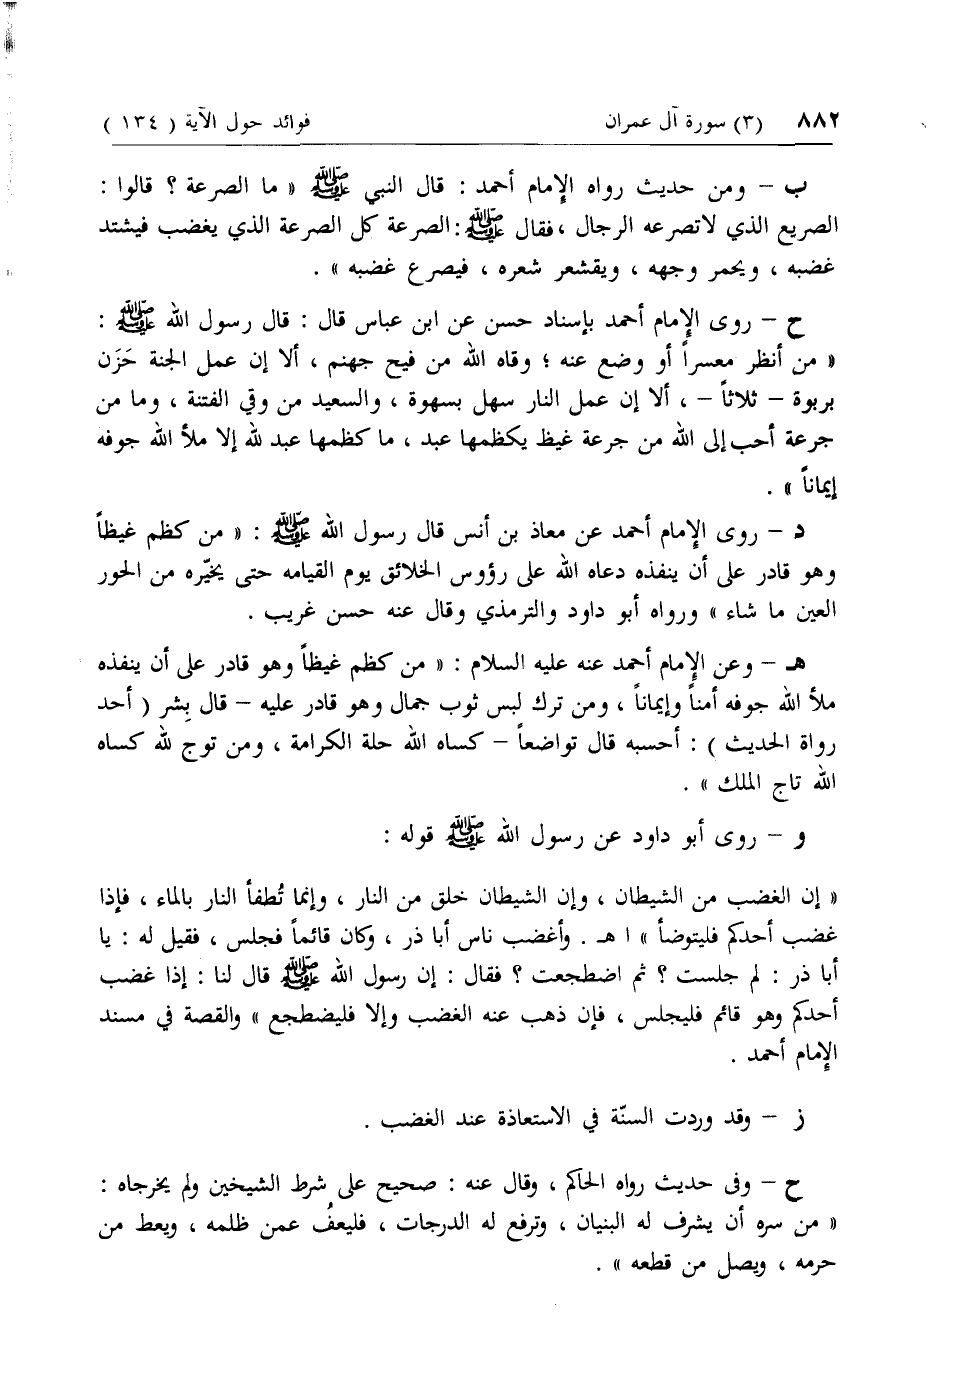 ٨٨٢ (٣) سورة آل عمران فوائد حول الآية ( ١٣٤ )
ب – ومن حديث رواه الإمام أحمد : قال النبي ﷺ « ما الصرعة ؟ قالوا :
الصريع الذي لاتصرعه الرجال ، فقال ﷺ : الصرعة كل الصرعة الذي يغضب فيشتد
غضبه ، ويحمر وجهه ، ويقشعر شعره ، فيصرع غضبه » .
ح – روى الإمام أحمد بإسناد حسن عن ابن عباس قال : قال رسول الله ﷺ :
« من أنظر معسراً أو وضع عنه ؛ وقاه الله من فيح جهنم ، ألا إن عمل الجنة حَزَن
بربوة – ثلاثاً – ، ألا إن عمل النار سهل بسهوة ، والسعيد من وقي الفتنة ، وما من
جرعة أحب إلى الله من جرعة غيظ يكظمها عبد ، ما كظمها عبد لله إلا ملأ الله جوفه
إيماناً » .
د – روى الإمام أحمد عن معاذ بن أنس قال رسول الله ﷺ : « من كظم غيظاً
وهو قادر على أن ينفذه دعاه الله على رؤوس الخلائق يوم القيامه حتى يخيّره من الحور
العين ما شاء » ورواه أبو داود والترمذي وقال عنه حسن غريب .
هـ – وعن الإمام أحمد عنه عليه السلام : « من كظم غيظاً وهو قادر على أن ينفذه
ملأ الله جوفه أمناً وإيماناً ، ومن ترك لبس ثوب جمال وهو قادر عليه – قال بِشر ( أحد
رواة الحديث ) : أحسبه قال تواضعاً – كساه الله حلة الكرامة ، ومن توج لله كساه
الله تاج الملك » .
و – روى أبو داود عن رسول الله ﷺ قوله :
« إن الغضب من الشيطان ، وإن الشيطان خلق من النار ، وإنما تُطفأ النار بالماء ، فإذا
غضب أحدكم فليتوضأ » ا هـ . وأغضب ناس أبا ذر ، وكان قائماً فجلس ، فقيل له : يا
أبا ذر : لم جلست ؟ ثم اضطجعت ؟ فقال : إن رسول الله ﷺ قال لنا : إذا غضب
أحدكم وهو قائم فليجلس ، فإن ذهب عنه الغضب وإلا فليضطجع » والقصة في مسند
الإمام أحمد .
ز – وقد وردت السنّة في الاستعاذة عند الغضب .
ح – وفى حديث رواه الحاكم ، وقال عنه : صحيح على شرط الشيخين ولم يخرجاه :
« من سره أن يشرف له البنيان ، وترفع له الدرجات ، فليعفُ عمن ظلمه ، ويعط من
حرمه ، ويصل من قطعه » .